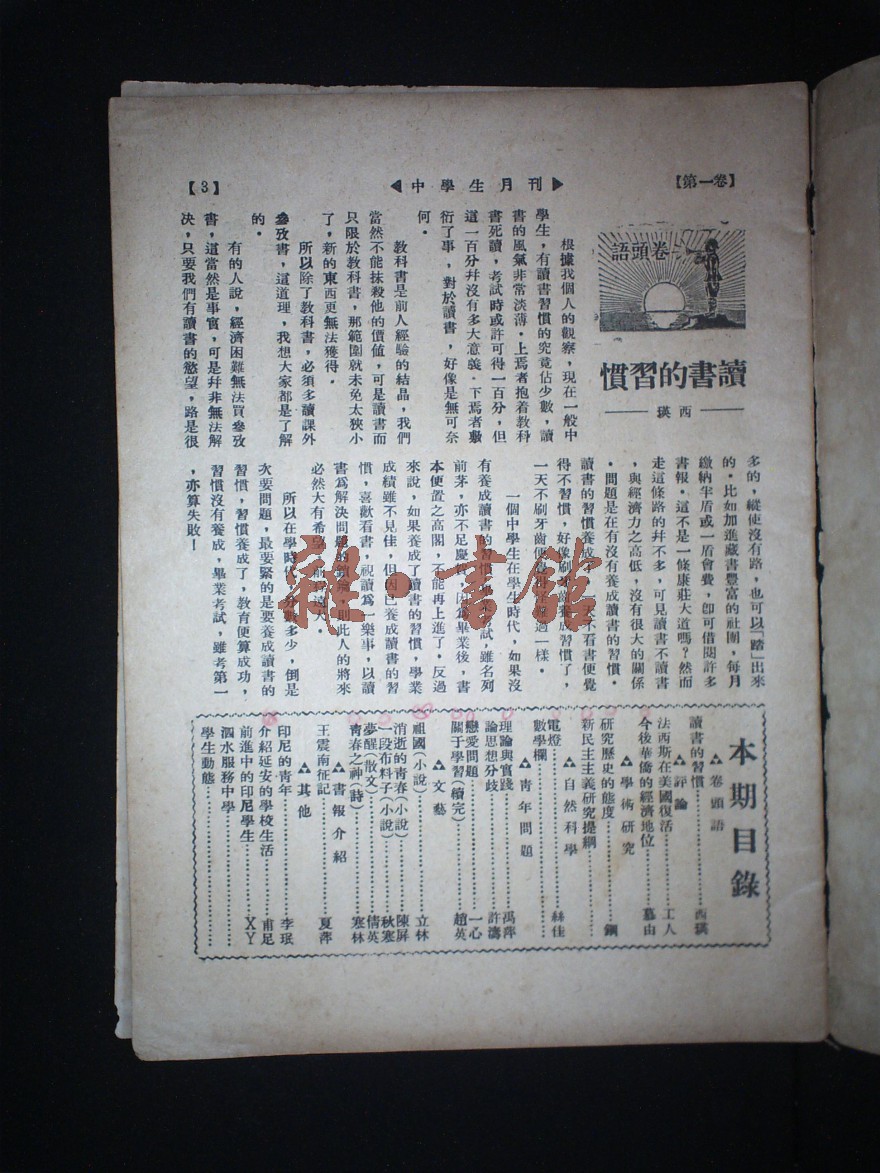 【第一卷】
▶中學生月刊◀
【3】
卷頭語
讀書的習慣
西瑛
根據我個人的觀察，現在一般中
學生，有讀書習慣的究竟佔少數，讀
書的風氣非常淡薄。上焉者抱着教科
書死讀，考試時或許可得一百分，但
這一百分幷沒有多大意義。下焉者敷
衍了事，對於讀書，好像是無可奈
何。
教科書是前人經驗的結晶，我們
當然不能抹殺他的價値，可是讀書而
只限於教科書，那範圍就未免太狹小
了，新的東西更無法獲得。
所以除了教科書，必須多讀課外
參攷書，這道理，我想大家都是了解
的。
有的人說，經濟困難無法買參攷
書，這當然是事實，可是幷非無法解
決，只要我們有讀書的慾望，路是很
多的，縱使沒有路，也可以「踏」出來
的。比如加進藏書豐富的社團，每月
繳納半盾或一盾會費，卽可借閱許多
書報。這不是一條康莊大道嗎？然而
走這條路的幷不多，可見讀書不讀書
，與經濟力之高低，沒有很大的關係
。問題是在有沒有養成讀書的習慣。
讀書的習慣養成了，一天不看書便覺
得不習慣，好像刷牙齒養成習慣了，
一天不刷牙齒便覺得 過一樣。
一個中學生在學生時代，如果沒
有養成讀書的習慣， 試，雖名列
前茅，亦不足慶 ，因爲畢業後，書
本便置之高閣，不能再上進了，反過
來說，如果養成了讀書的習慣，學業
成績雖不見佳，但因已養成讀書的習
慣，喜歡看書，視讀爲一樂事，以讀
書爲解決問題的鎖 ，則此人的將來
必然大有希望，前 遠大。
所以在學時代，分數多少，倒是
次要問題，最要緊的是要養成讀書的
習慣，習慣養成了，教育便算成功，
習慣沒有養成，畢業考試，雖考第一
，亦算失敗！
本期目錄
卷頭語
讀書的習慣……西瑛
評論
法西斯在美國復活……工人
今後華僑的經濟地位……墓由
學術研究
研究歷史的態度……鋼
新民主主義研究提綱……
自然科學
電燈……絲佳
數學欄……
青年問題
理論與實踐……禹萍
論思想分歧……許濤
戀愛問題……一心
關于學習（續完）……趙英
文藝
祖國（小說）……立林
消逝的青春（小說）……陳屏
一段布料子（小說）……秋寒
夢醒（散文）……倩英
青春之神（詩）……寒林
書報介紹
王震南征記……夏萍
其他
印尼的青年……李珉
介紹延安的學校生活……甫足
前進中的印尼學生……XY
泗水服務中學……
學生動態……
雜·書館